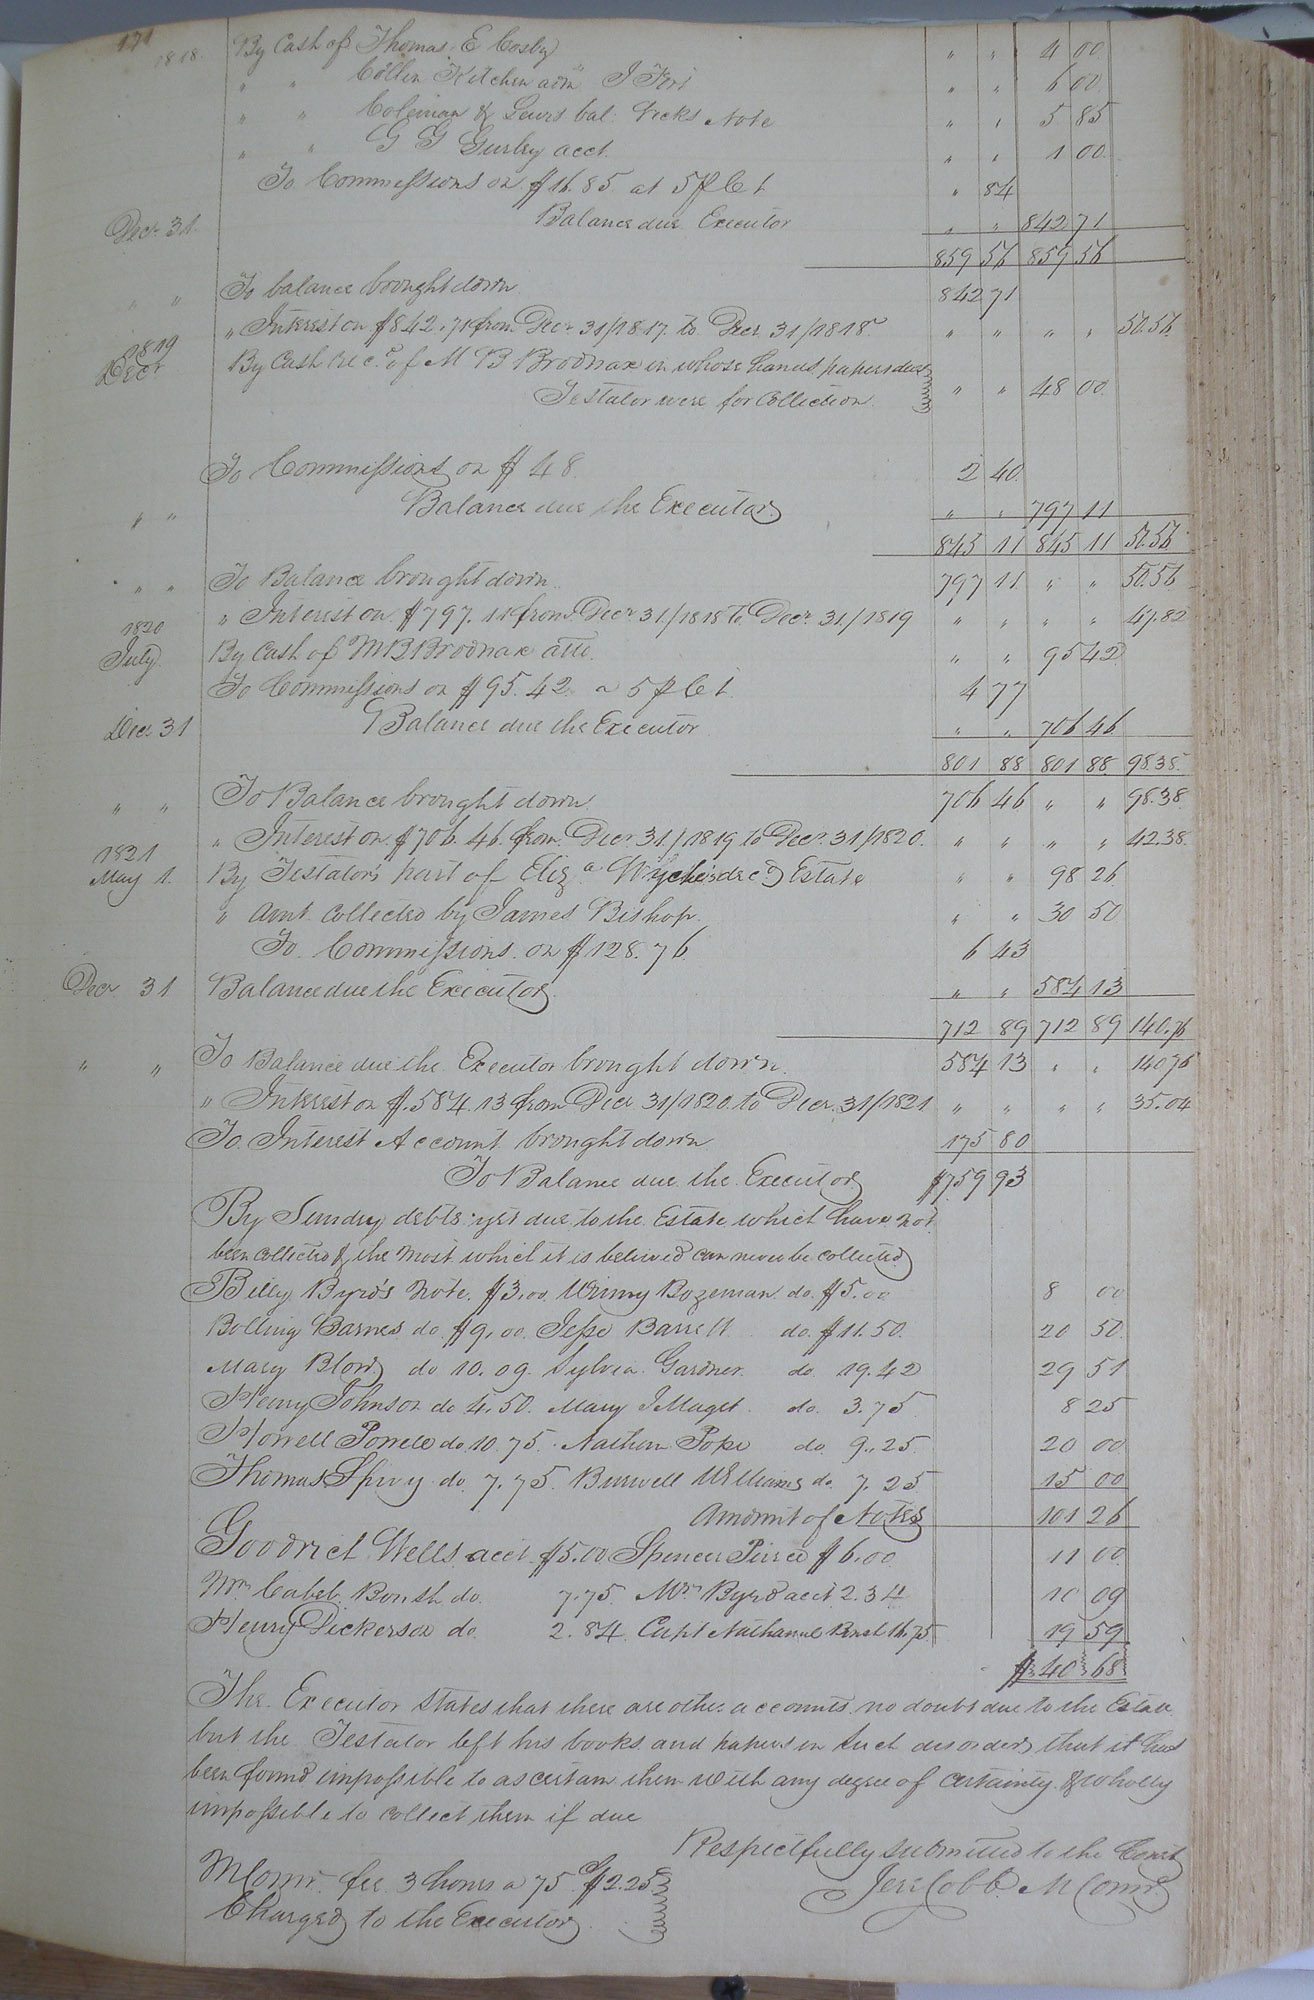 171
1818. By Cash of Thomas E Cosby " " 4 00
" " Collin Kitchen adm J Fort " " 6 00
" " Coleman & Lewis bal: Dicks Note " " 5 85
" " G G Gurley acct. " " 1 00
To Commissions on $16.85 at 5 p Ct " 84
Decr 31. Balance due Executor " " 842 71
859 56 859 56
" " To balance brought down 842 71
" Interest on $842.71 from Decr 31/1817. to Decr 31/1818 " " " " 50.56
1819
Decr By Cash rec.d of M B Brodnax in whose hands papers due
Testator were for Collection " " 48 00
To Commissions on $48. 2 40
" " Balance due the Executor " " 797 11
845 11 845 11 50.56
" " To Balance brought down 797 11 " " 50.56
" Interest on $797.11 from Decr 31/1818 to Decr. 31/1819 " " " " 47.82
1820
July By Cash of M B Brodnax atto. " " 95 42
To Commissions on $95.42 a 5 p Ct 4 77
Decr 31 Balance due the Executor " " 706 46
801 88 801 88 98.38.
" " To Balance brought down 706 46 " " 98.38
" Interest on $706.46 from Decr 31/1819 to Decr. 31/1820. " " " " 42.38.
1821
May 1. By Testator's part of Eliza Wyche's decd Estate " " 98 26
" Amt collected by James Bishop. " " 30 50
To Commissions on $128.76 6 43
Decr 31 Balance due the Executor " " 584 13
712 89 712 89 140.76
" " To Balance due the Executor brought down 584 13 " " 140 76
" Interest on $584.13 from Decr 31/1820. to Decr. 31/1821 " " " " 35.04
To Interest Account brought down 175 80
To Balance due the Executor $759 93
By Sundry debts yet due to the Estate which have not
been collected & the most which it is believed can never be collected
Billy Byrd's Note. $3.00 Winny Bozeman do. $5.00 8 00
Bolling Barnes do $9.00 Jesse Barrett do. $11.50. 20 50
Mary Blow do 10.09. Sylvia Gardner do. 19.42 29 51
Henry Johnson do 4.50. Mary J Maget do. 3.75 8 25
Howell Powell do 10.75. Nathan Pope do 9.25 20 00
Thomas Spivy do. 7.75. Burwell Williams do. 7.25 15 00
Amount of Notes 101 26
Goodrich Wells acct. $5.00 Spencer Peirce $6.00 11 00
Mrs Cabeb. Boush do. 7.75. Mrs Byrd acct 2.34 10 09
Henry Dickerson do 2.84. Capt Nathaniel 16.75 19 59
$40 68
The Executor states that there are other accounts no doubt due to the Estate
but the Testator left his books and papers in such disorder, that it has
been found impossible to ascertain them with any degree of certainty & wholly
impossible to collect them if due
Respectfully submitted to the Court
M Comr. fee 3 hours a 75 $2.25
Jere Cobb. M Comr
Charged to the Executor